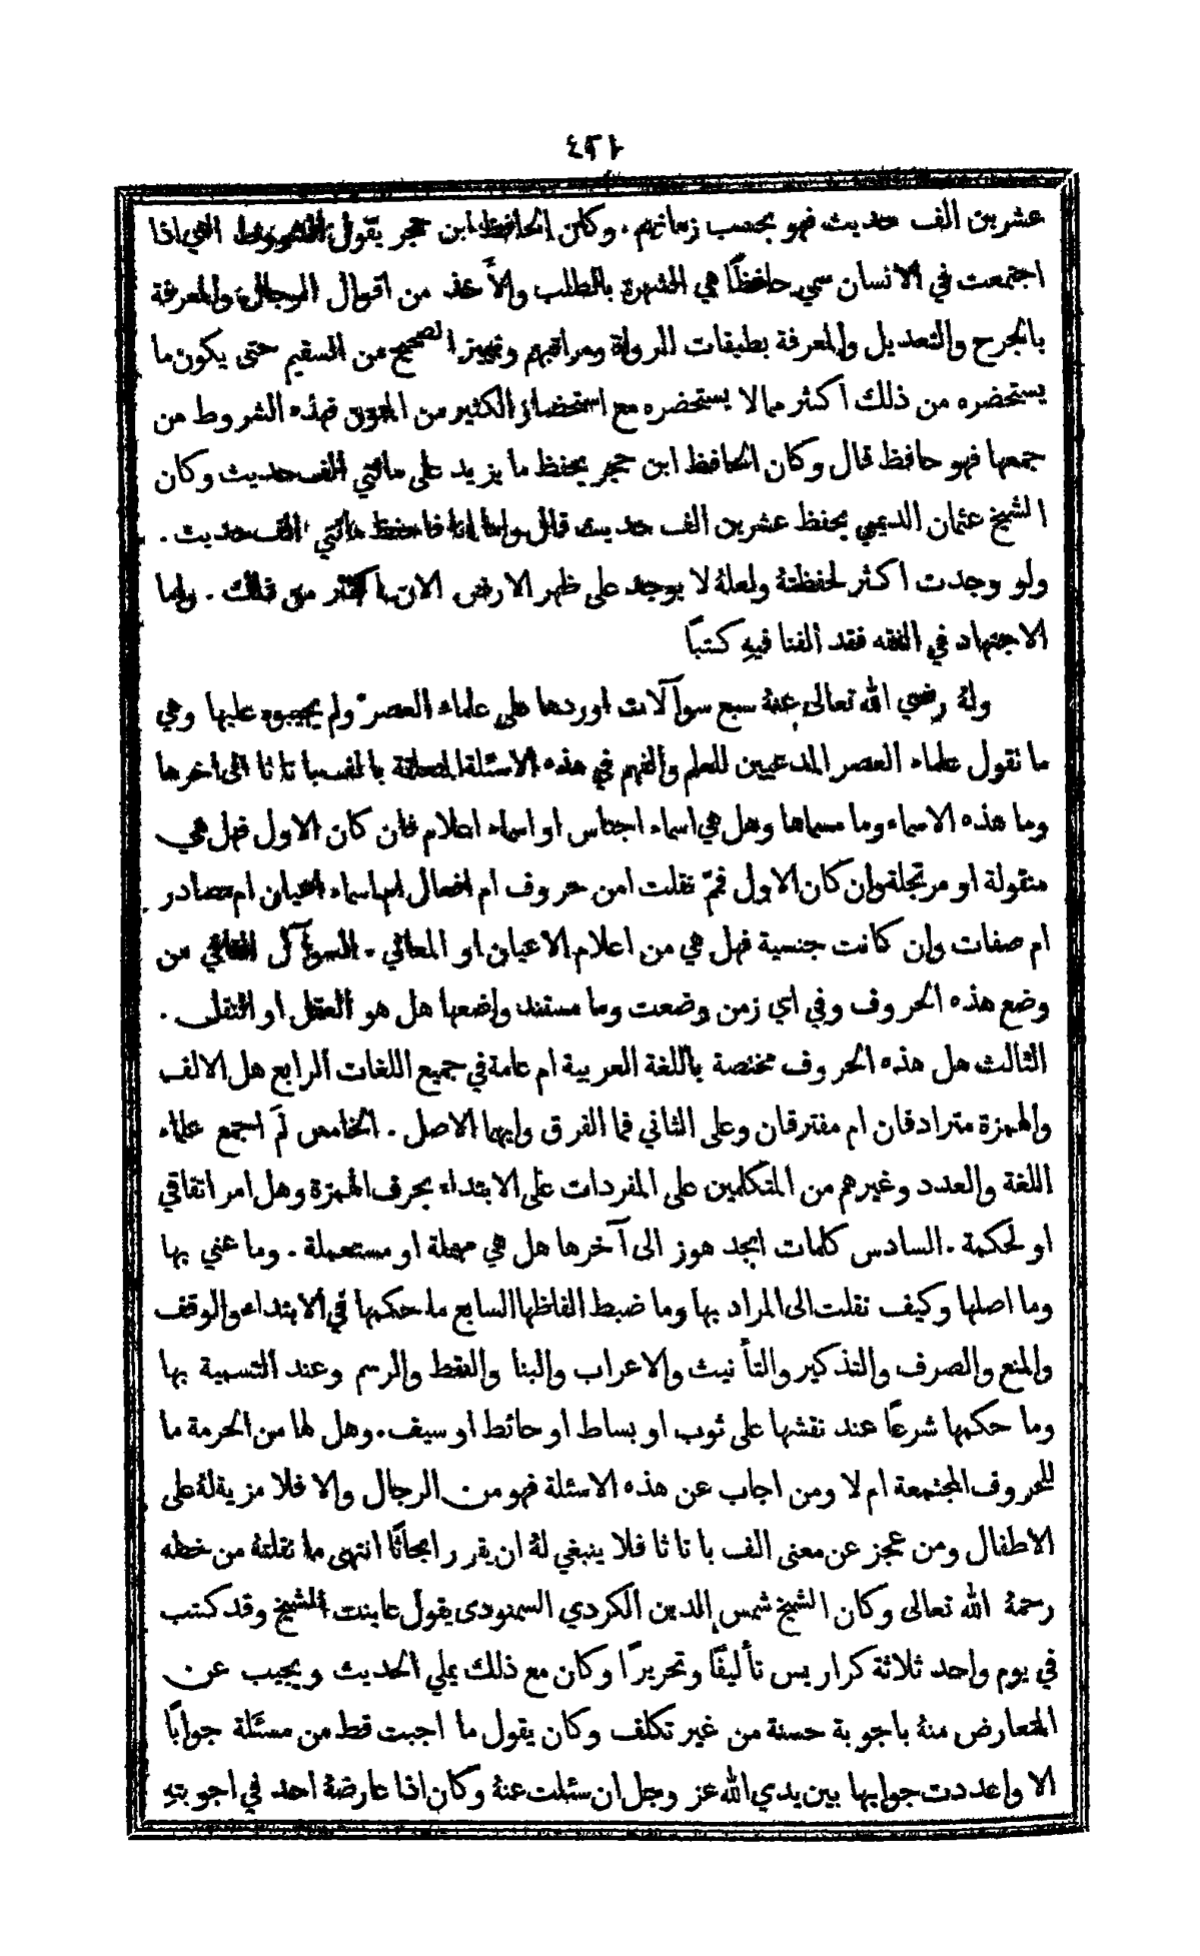 ٤٢١
عشرين الف حديث فهو بحسب زمانهم . وكان الحافظ ابن حجر يقول الشروط التي اذا
اجتمعت في الانسان سمي حافظًا هي الشهرة بالطلب والأخذ من اقوال الرجال والمعرفة
بالجرح والتعديل والمعرفة بطبقات الرواة ومراتبهم وتمييز الصحيح من السقيم حتى يكون ما
يستحضره من ذلك اكثر مما لا يستحضره مع استحضار الكثير من المتون فهذه الشروط من
جمعها فهو حافظ قال وكان الحافظ ابن حجر يحفظ ما يزيد على مائتي الف حديث وكان
الشيخ عثمان الديمي يحفظ عشرين الف حديث قال واما انا فاحفظ مائتي الف حديث .
ولو وجدت اكثر لحفظتهٔ ولعلهٔ لا يوجد على ظهر الارض الان اكثر من ذلك . واما
الاجتهاد في الفقه فقد الفنا فيهِ كتبًا
ولهٔ رضي الله تعالى عنهٔ سبع سوآلات اوردها على علماء العصر ولم يجيبوه عليها وهي
ما تقول علماء العصر المدعيين للعلم والفهم في هذه الاسئلة المتعلقة بالف با تا ثا الى اخرها
وما هذه الاسماء وما مسماها وهل هي اسماء اجناس او اسماء اعلام فان كان الاول فهل هي
منقولة او مرتجلة وان كان الاول فممّ نقلت امن حروف ام افعال ام اسماء اعيان ام مصادر
ام صفات وان كانت جنسية فهل هي من اعلام الاعيان او المعاني . السوآل الثاني من
وضع هذه الحروف وفي اي زمن وضعت وما مستند واضعها هل هو العقل او النقل .
الثالث هل هذه الحروف مختصة باللغة العربية ام عامة في جميع اللغات الرابع هل الالف
والهمزة مترادفان ام مفترقان وعلى الثاني فما الفرق وايهما الاصل . الخامس لمَ اجمع علماء
اللغة والعدد وغيرهم من المتكلمين على المفردات على الابتداء بحرف الهمزة وهل امر اتفاقي
او لحكمة . السادس كلمات ابجد هوز الى آخرها هل هي مهملة او مستعملة . وما عني بها
وما اصلها وكيف نقلت الى المراد بها وما ضبط الفاظها السابع ما حكمها في الابتداء والوقف
والمنع والصرف والتذكير والتأنيث والاعراب والبنا والنقط والرسم وعند التسمية بها
وما حكمها شرعًا عند نقشها على ثوب او بساط او حائط او سيف . وهل لها من الحرمة ما
للحروف المجتمعة ام لا ومن اجاب عن هذه الاسئلة فهو من الرجال والا فلا مزية لهٔ على
الاطفال ومن عجز عن معنى الف با تا ثا فلا ينبغي لهٔ ان يقرر ابحاثًا انتهى ما نقلتهٔ من خطه
رحمهٔ الله تعالى وكان الشيخ شمس الدين الكردي السمنودى يقول عاينت الشيخ وقد كتب
في يوم واحد ثلاثة كراريس تأليفًا وتحريرًا وكان مع ذلك يملي الحديث ويجيب عن
المتعارض منهٔ باجوبة حسنة من غير تكلف وكان يقول ما اجبت قط من مسئلة جوابًا
الا واعددت جوابها بين يدي الله عز وجل ان سئلت عنهٔ وكان اذا عارضهٔ احد في اجوبتهِ